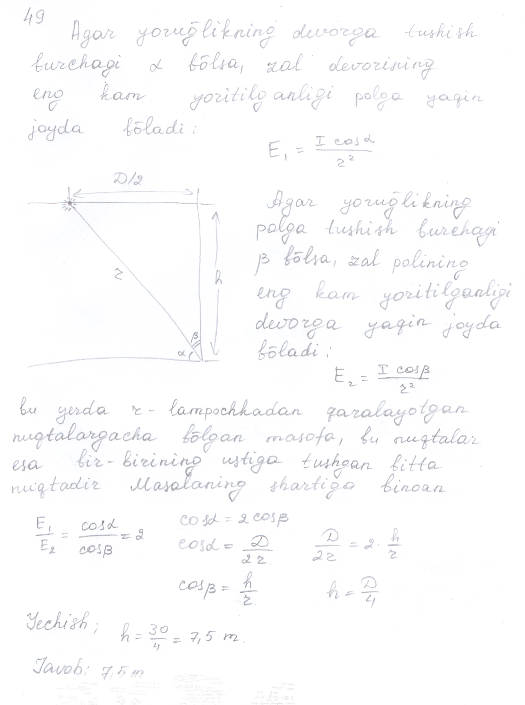 49
Agar yorug̃likning devorga tushish
burchagi α bo̅lsa, zal devorining
eng kam yoritilganligi polga yaqin
joyda bo̅ladi:
E₁ = I cosα / r²
D/2
r
h
β
α
Agar yorug̃likning
polga tushish burchagi
β bo̅lsa, zal polining
eng kam yoritilganligi
devorga yaqin joyda
bo̅ladi:
E₂ = I cosβ / r²
bu yerda r - lampochkadan qaralayotgan
nuqtalargacha bo̅lgan masofa, bu nuqtalar
esa bir-birining ustiga tushgan bitta
nuqtadir Masalaning shartiga binoan
E₁/E₂ = cosα/cosβ = 2
cosα = 2cosβ
cosα = D/2r
D/2r = 2 · h/r
cosβ = h/r
h = D/4
Yechish; h = 30/4 = 7,5 m.
Javob: 7,5 m